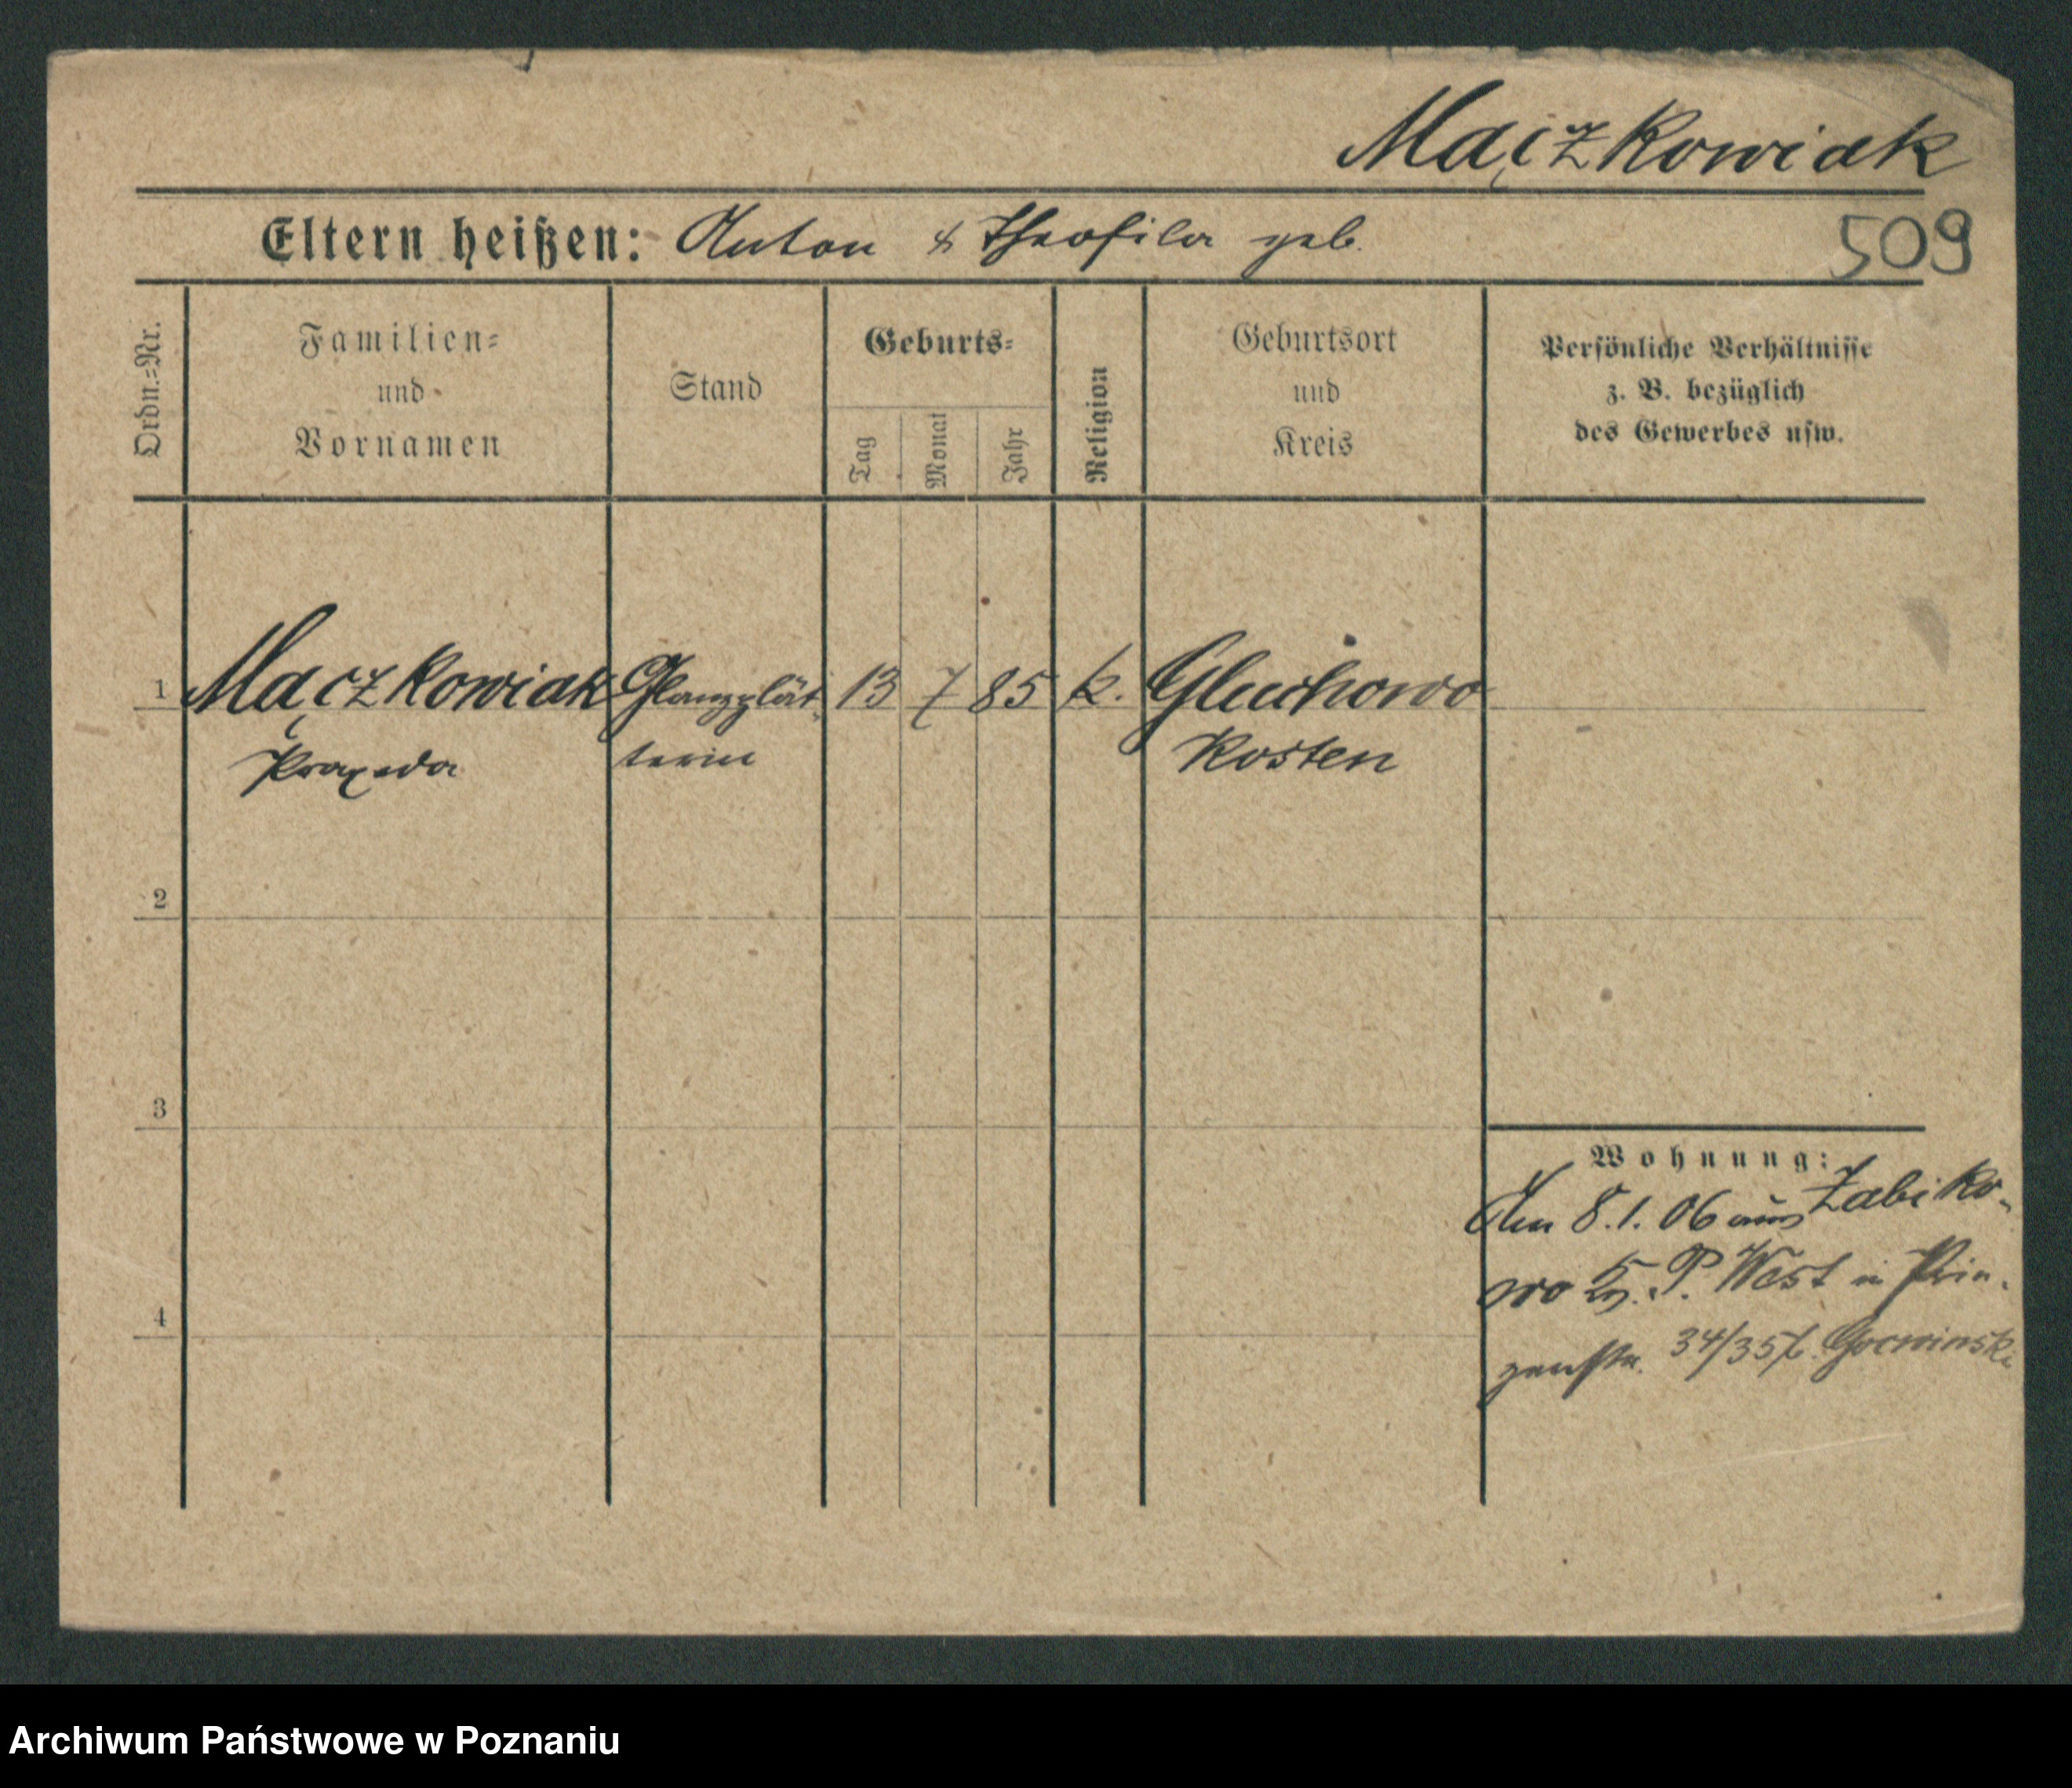 Mączkowiak
Eltern heißen: Anton & Theofila geb.
509
Ordn.-Nr.
Familien-
und
Vornamen
Stand
Geburts-
Tag
Monat
Jahr
Religion
Geburtsort
und
Kreis
Persönliche Verhältnisse
z. B. bezüglich
des Gewerbes usw.
1 Mączkowiak Glanzplät- 13 7 85 k. Gluchowo
Praxeda terin Kosten
2
3
4
Wohnung:
Am 8.1.06 aus Zabiko-
wo P. West in Prin-
zenstr. 34/35 b. Gorwinski
Archiwum Państwowe w Poznaniu